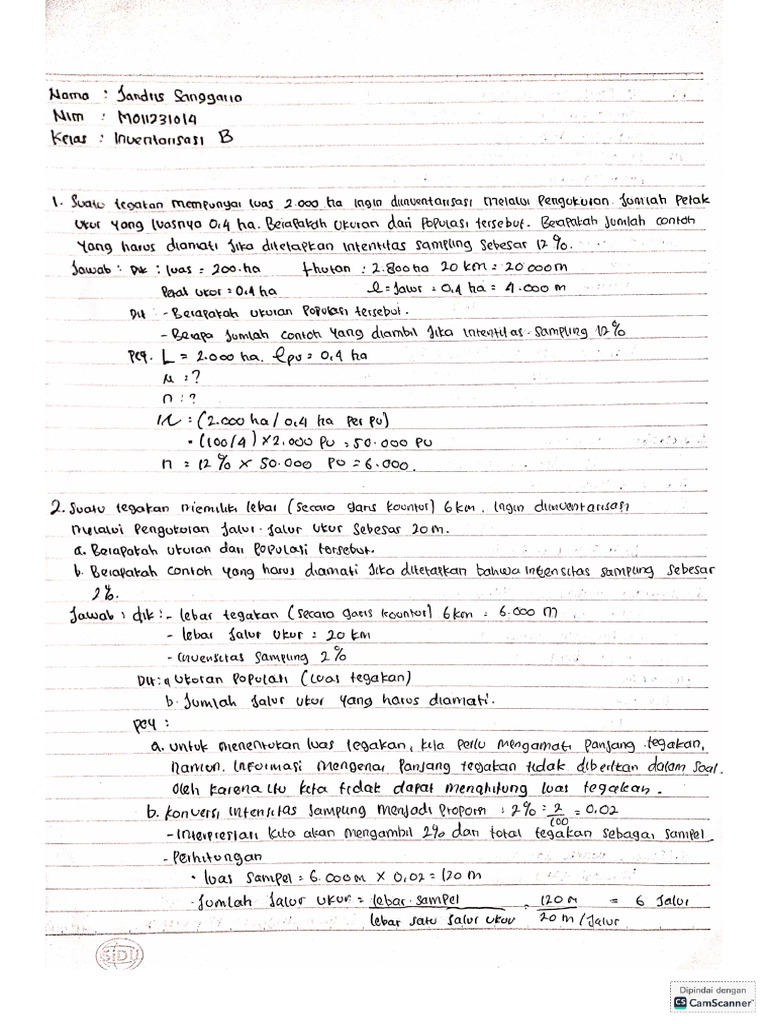 Nama : Jandris Sanggario
Nim : M011231014
Kelas : Inventarisasi B
1. Suatu tegakan mempunyai luas 2.000 ha ingin diinventarisasi melalui Pengukuran Jumlah Petak
Ukur yang luasnya 0,4 ha. Berapakah ukuran dari Populasi tersebut. Berapakah Jumlah contoh
yang harus diamati Jika ditetapkan Intentitas sampling sebesar 12%.
Jawab : Dik : luas = 200.ha thutan : 2.800 ha 20 km = 20 000 m
Petak ukur = 0,4 ha l = Jalur = 0,4 ha = 4.000 m
Dit : - Berapakah ukuran Populasi tersebut.
- Berapa Jumlah contoh yang diambil Jika intentitas sampling 12%
Peny. L = 2.000 ha. lpu = 0,4 ha
N : ?
n : ?
N : (2.000 ha / 0,4 ha per pu)
= (100/4) x 2.000 PU = 50.000 PU
n = 12% x 50.000 PU = 6.000.
2. Suatu tegakan memiliki lebar (secara garis kountor) 6 km. Ingin diinventarisasi
melalui Pengukuran Jalur-Jalur ukur sebesar 20m.
a. Berapakah ukuran dari Populasi tersebut.
b. Berapakah contoh yang harus diamati Jika ditetapkan bahwa intensitas sampling sebesar
2%.
Jawab : dik : - lebar tegakan (secara garis kountor) 6 km = 6.000 m
- lebar Jalur ukur : 20 km
- intensitas sampling 2%
Dit : a ukuran Populasi (luas tegakan)
b. Jumlah Jalur ukur yang harus diamati.
Peny :
a. untuk menentukan luas tegakan, kita perlu mengamati panjang tegakan,
namun. Informasi mengenai Panjang tegakan tidak diberikan dalam soal.
oleh karena itu kita tidak dapat menghitung luas tegakan.
b. konversi intensitas sampung menjadi Proporsi : 2% = 2/100 = 0.02
- Interpretasi kita akan mengambil 2% dari total tegakan sebagai sampel
- Perhitungan
• luas sampel = 6.000 m x 0,02 = 120 m
- Jumlah Jalur ukur = lebar sampel / lebar satu Jalur ukur = 120 m / 20 m / Jalur = 6 Jalur
SIDU
Dipindai dengan
CS CamScanner